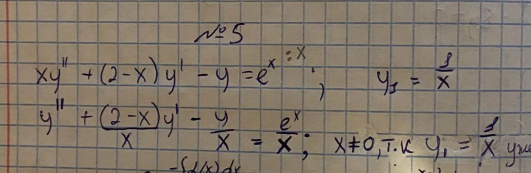 №5
xy" + (2-x)y' - y = e^x :x ; y₁ = 1/x
y" + (2-x)/x y' - y/x = e^x/x ; x≠0, т.к y₁ = 1/x